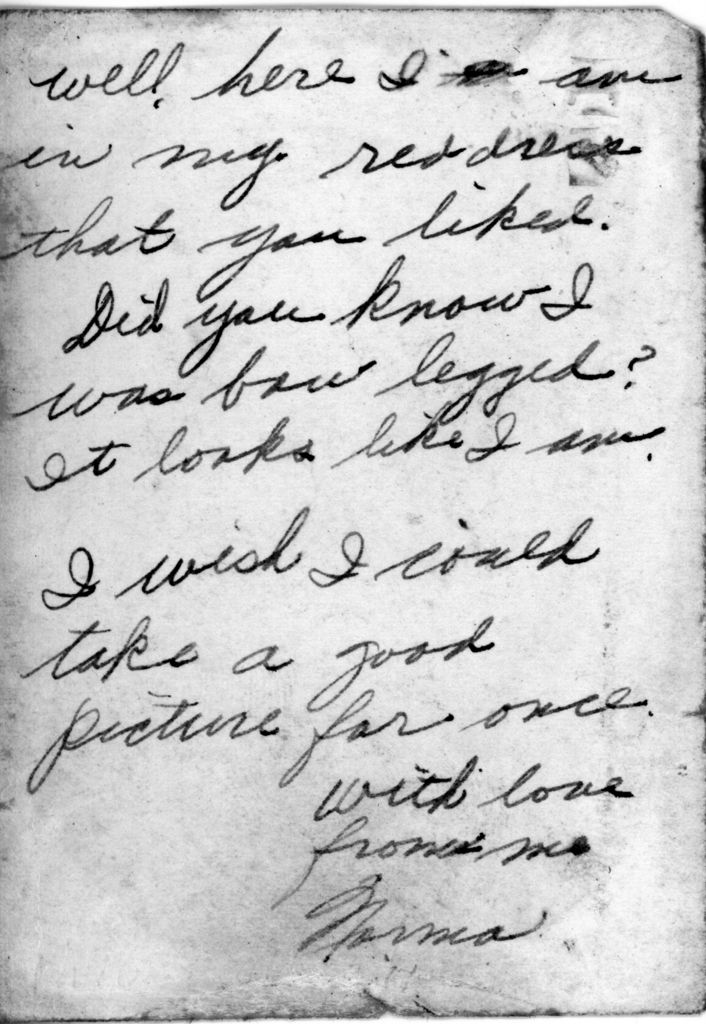 well, here I am
in my red dress
that you liked.
Did you know I
was bow legged?
It looks like I am.
I wish I could
take a good
picture for once.
with love
from me
Norma